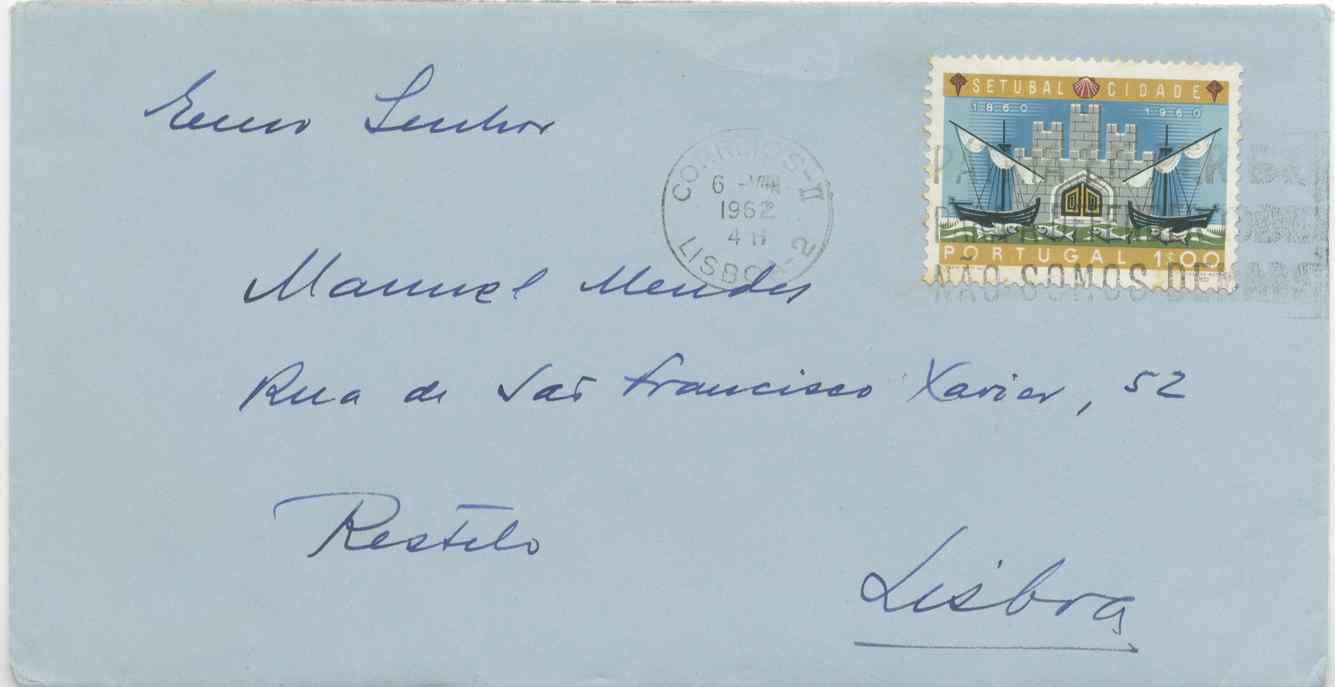 Exmo Senhor
Manuel Mendes
Rua de São Francisco Xavier, 52
Restelo
Lisboa
SETUBAL CIDADE
1860 1960
PORTUGAL 1$00
CORREIOS-II
6 -VIII
1962
4 H
LISBOA-2
NÃO SOMOS DE